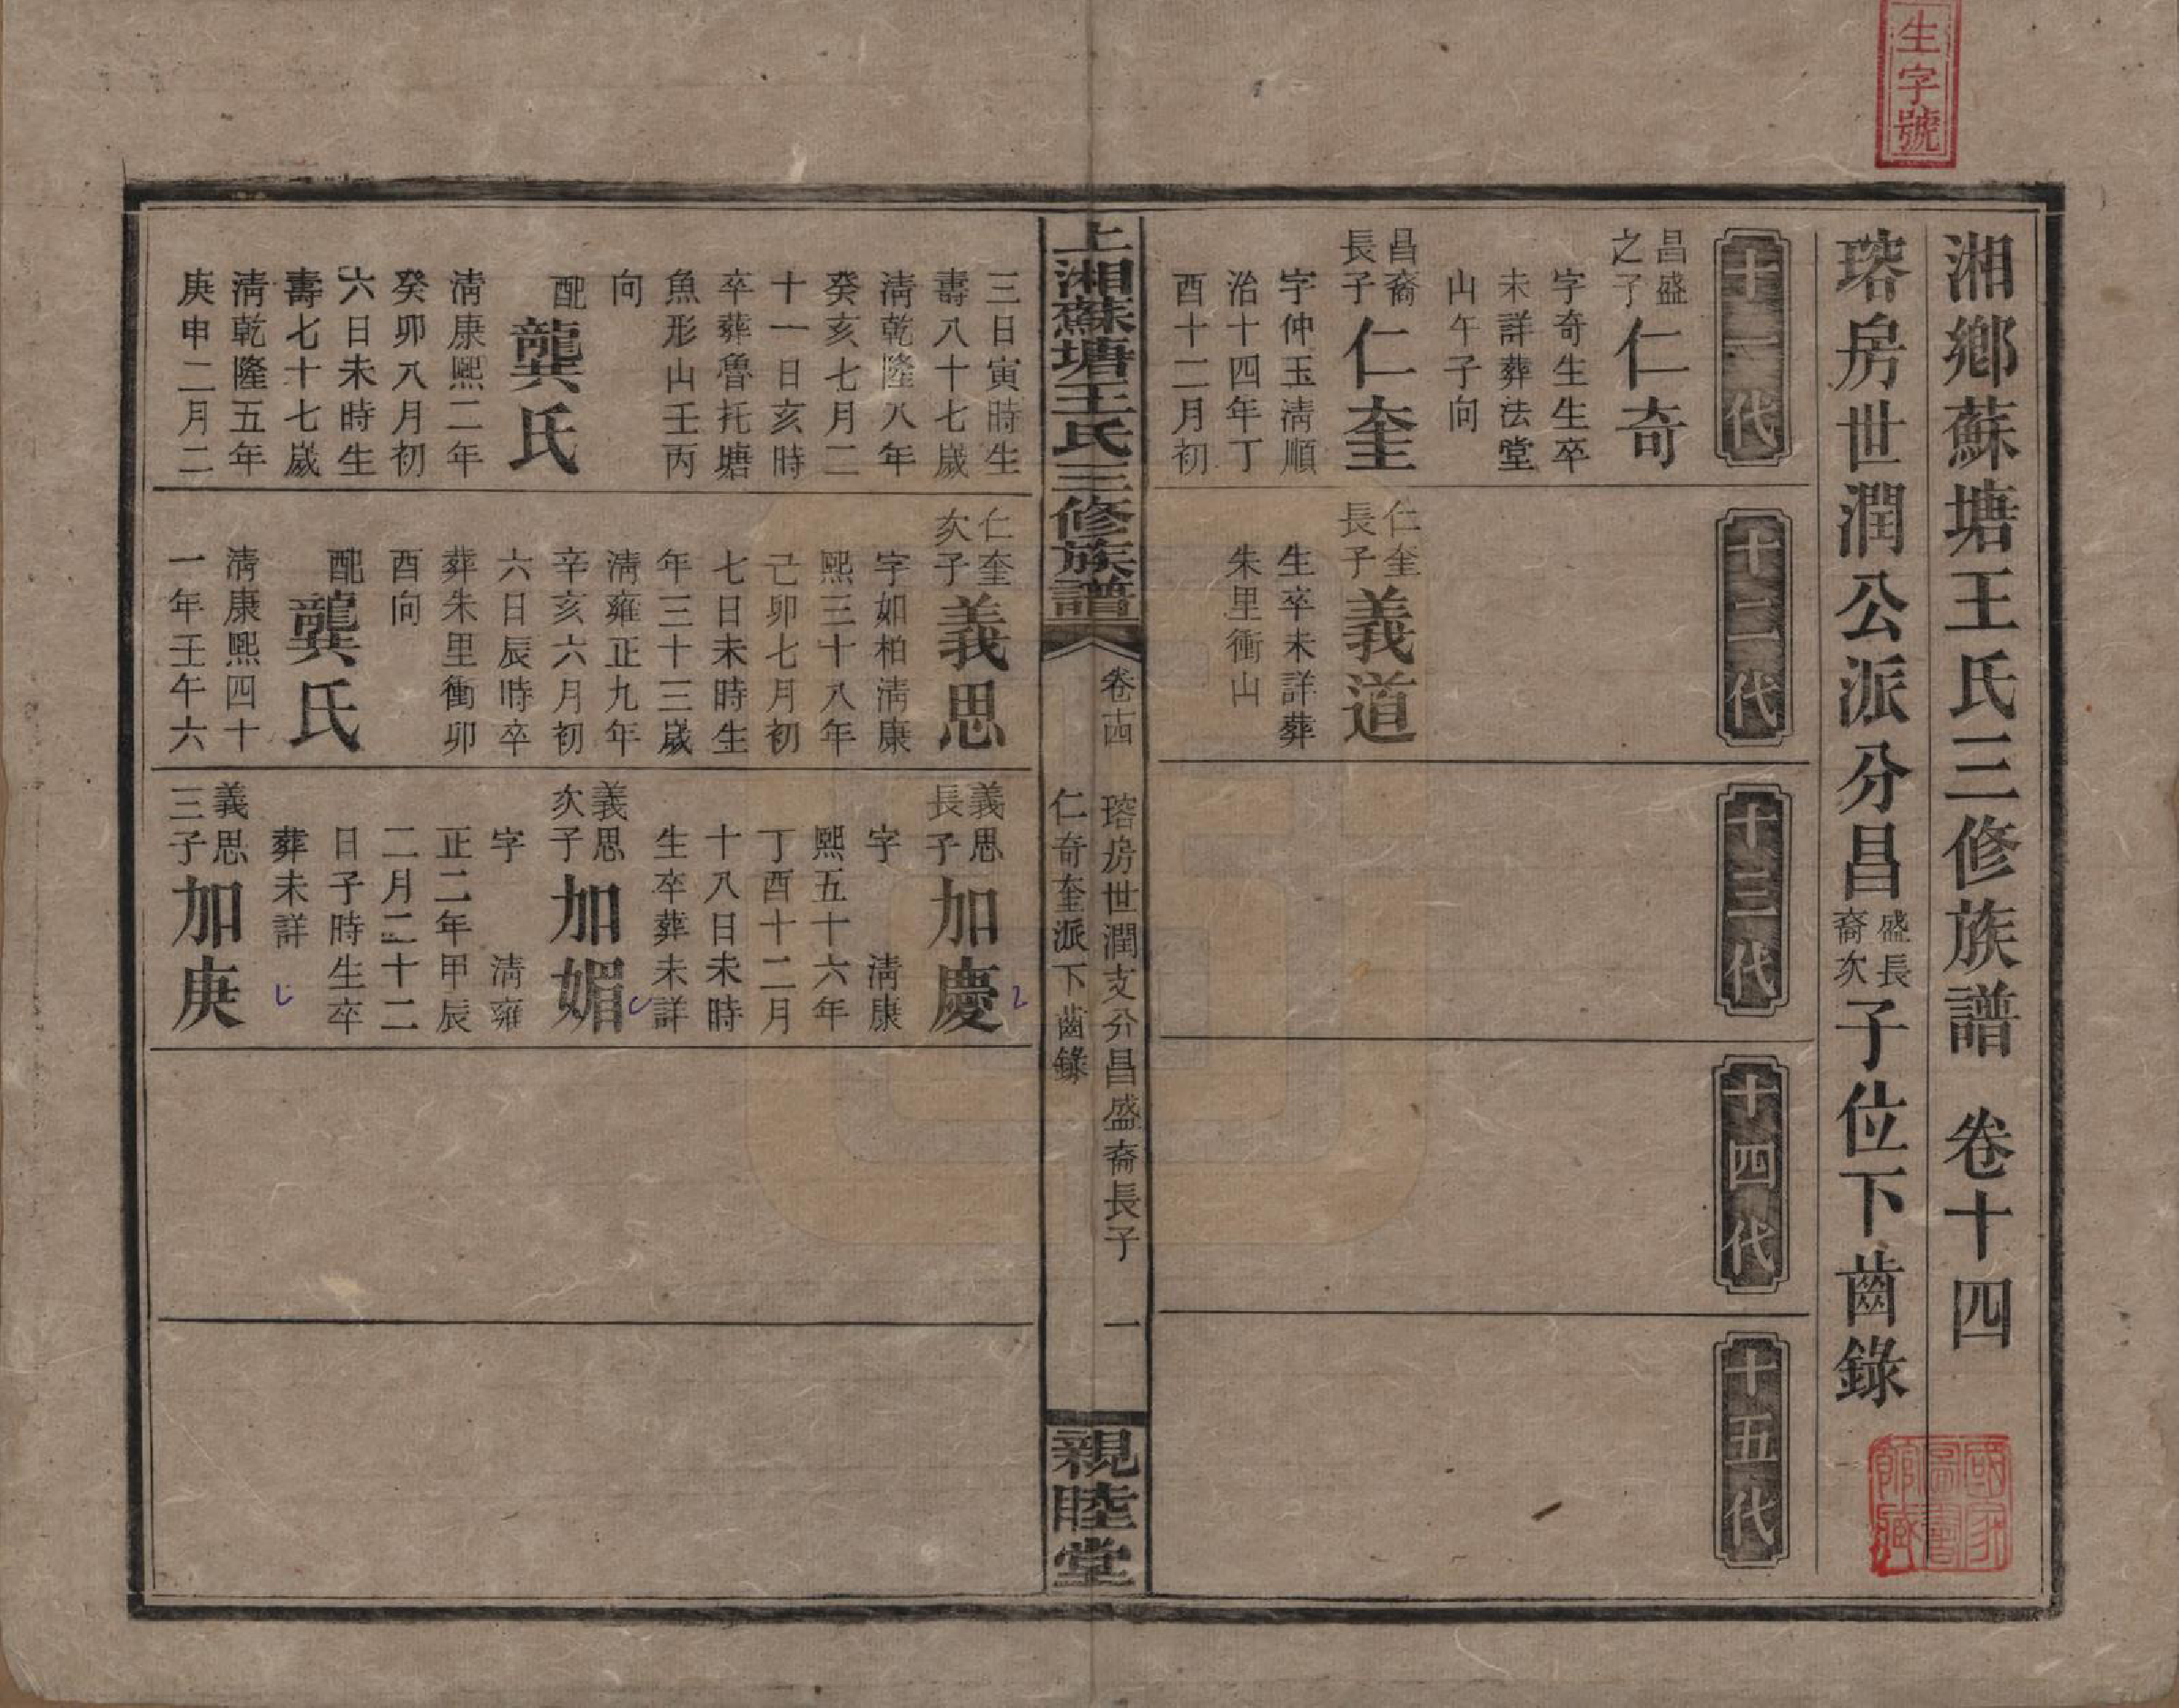 生字號
湘鄉蘇塘王氏三修族譜 卷十四
瑢房世潤公派分昌盛長裔次子位下齒錄
國家圖書館藏
十一代
昌盛之子
仁奇
字奇生生卒
未詳葬法堂
山午子向
昌裔長子
仁奎
字仲玉淸順
治十四年丁
酉十二月初
十二代
仁奎長子
義道
生卒未詳葬
朱里衝山
十三代
十四代
十五代
上湘蘇塘王氏三修族譜
卷十四
瑢房世潤支分昌盛裔長子
仁奇奎派下齒錄
一
親睦堂
三日寅時生
壽八十七歲
淸乾隆八年
癸亥七月二
十一日亥時
卒葬魯托塘
魚形山壬丙
向
配
龔氏
淸康熙二年
癸卯八月初
六日未時生
壽七十七歲
淸乾隆五年
庚申二月二
仁奎次子
義思
字如柏淸康
熙三十八年
己卯七月初
七日未時生
年三十三歲
淸雍正九年
辛亥六月初
六日辰時卒
葬朱里衝卯
酉向
配
龔氏
淸康熙四十
一年壬午六
義思長子
加慶
字 淸康
熙五十六年
丁酉十二月
十八日未時
生卒葬未詳
義思次子
加媚
字 淸雍
正二年甲辰
二月二十二
日子時生卒
葬未詳
義思三子
加庚